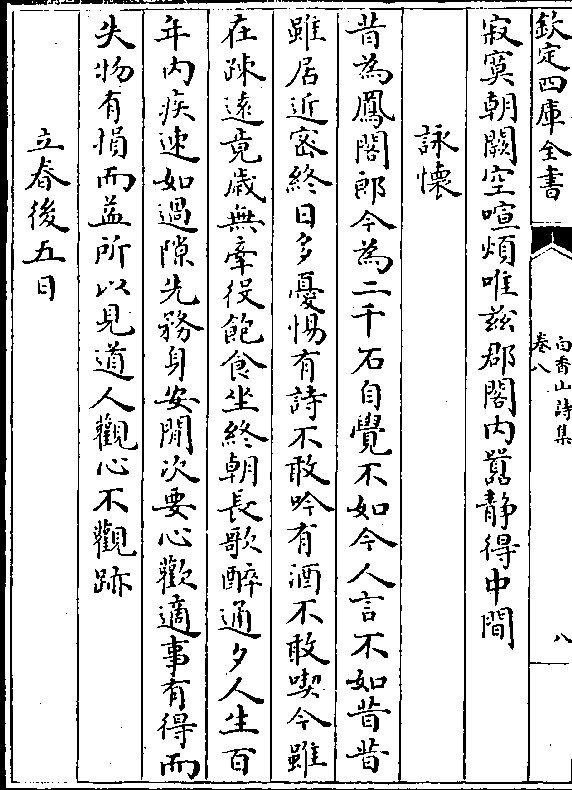 欽定四庫全書
白香山詩集
卷八
八
寂寞朝闕空喧煩唯茲郡閣内囂静得中間
詠懷
昔為鳳閣郎今為二千石自覺不如今人言不如昔昔
雖居近密終日多憂惕有詩不敢吟有酒不敢喫今雖
在疎遠竟歲無牽役飽食坐終朝長歌醉通夕人生百
年内疾速如過隙先務身安閒次要心歡適事有得而
失物有損而益所以見道人觀心不觀跡
立春後五日